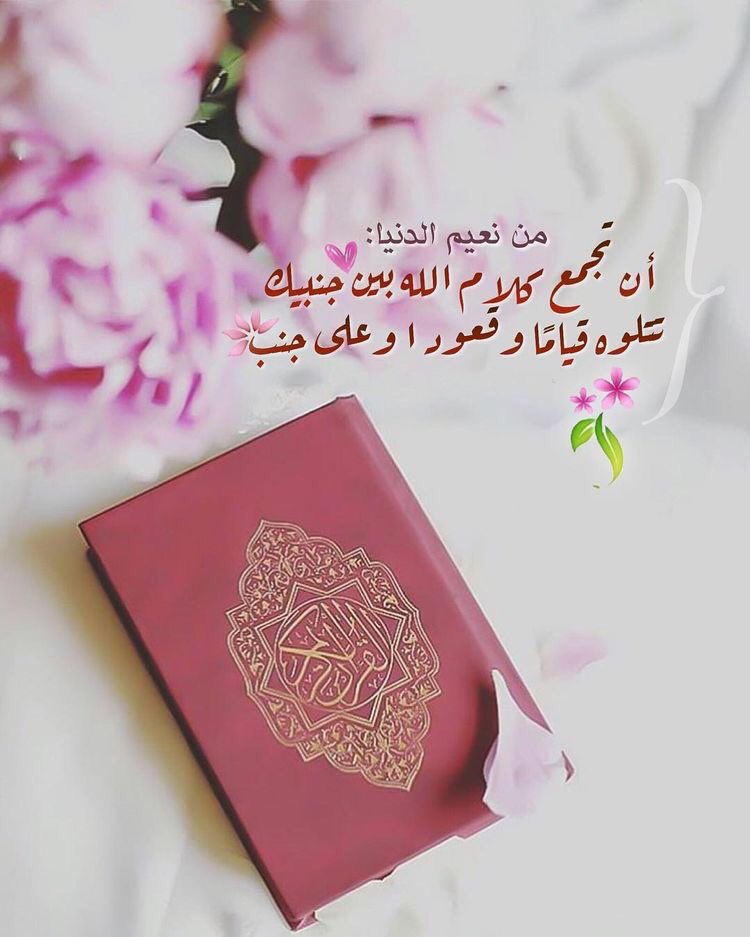 من نعيم الدنيا:
أن تجمع كلام الله بين جنبيك
تتلوه قيامًا و قعودا و على جنب
القرآن الكريم